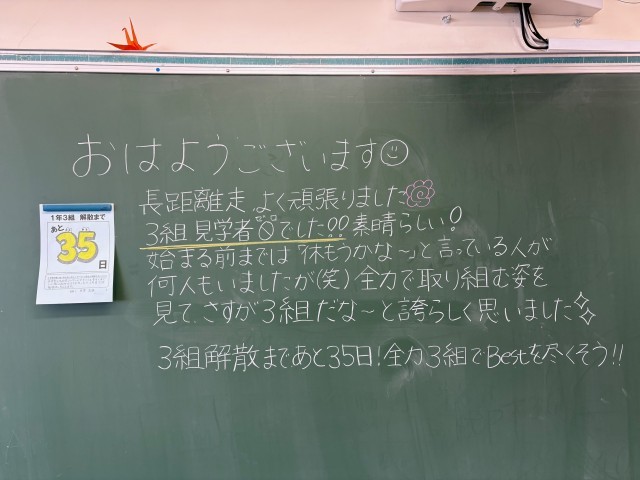 おはようございます☺
長距離走、よく頑張りました
3組 見学者0でした!! 素晴らしい!
ゼロ
始まる前までは「休もうかな〜」と言っている人が
何人もいましたが(笑) 全力で取り組む姿を
見て、さすが3組だな〜と誇らしく思いました
3組解散まであと35日!全力3組でBestを尽くそう!!
1年3組 解散まで
あと
35
日